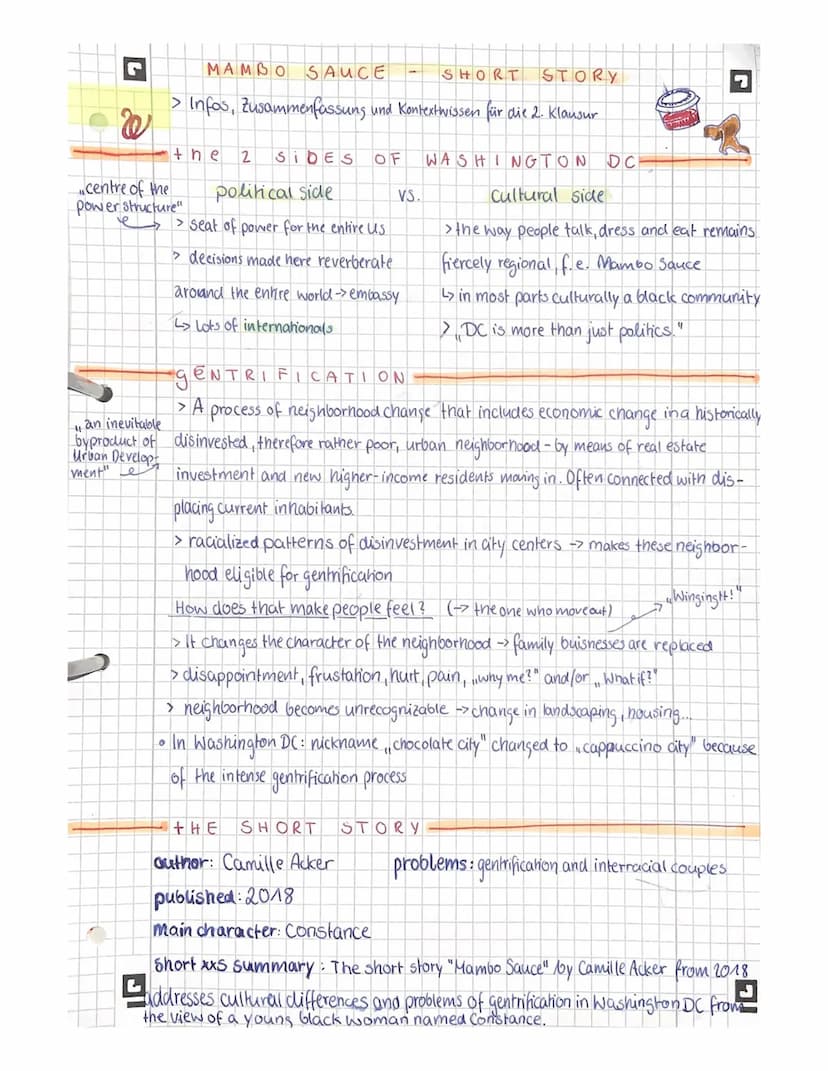 MAMBO SAUCE - SHORT STORY
> Infos, Zusammenfassung und Kontextwissen für die 2. Klausur
the 2 SiDES OF WASHINGTON DC
„centre of the
power structure"
political side vs. cultural side
> seat of power for the entire US
> decisions made here reverberate
around the entire world -> embassy
↳ Lots of internationals
> the way people talk, dress and eat remains
fiercely regional, f.e. Mambo Sauce
↳ in most parts culturally a black community
> „DC is more than just politics."
gENTRIFICATION
„an inevitable
byproduct of
Urban Develop-
ment"
> A process of neighborhood change that includes economic change in a historically
disinvested, therefore rather poor, urban neighborhood - by means of real estate
investment and new higher-income residents moving in. Often connected with dis-
placing current inhabitants.
> racialized patterns of disinvestment in city centers -> makes these neighbor-
hood eligible for gentrification
How does that make people feel? (-> the one who move out)
„WingingIt!"
> It changes the character of the neighborhood -> family buisnesses are replaced
> disappointment, frustation, hurt, pain, „why me?" and/or „What if?"
> neighborhood becomes unrecognizable -> change in landscaping, housing...
• In Washington DC: nickname „chocolate city" changed to „cappuccino city" because
of the intense gentrification process
tHE SHORT STORY
author: Camille Acker
problems: gentrification and interracial couples
published: 2018
main character: Constance
short xxs summary: The short story "Mambo Sauce" by Camille Acker from 2018
addresses cultural differences and problems of gentrification in Washington DC from
the view of a young black woman named Constance.